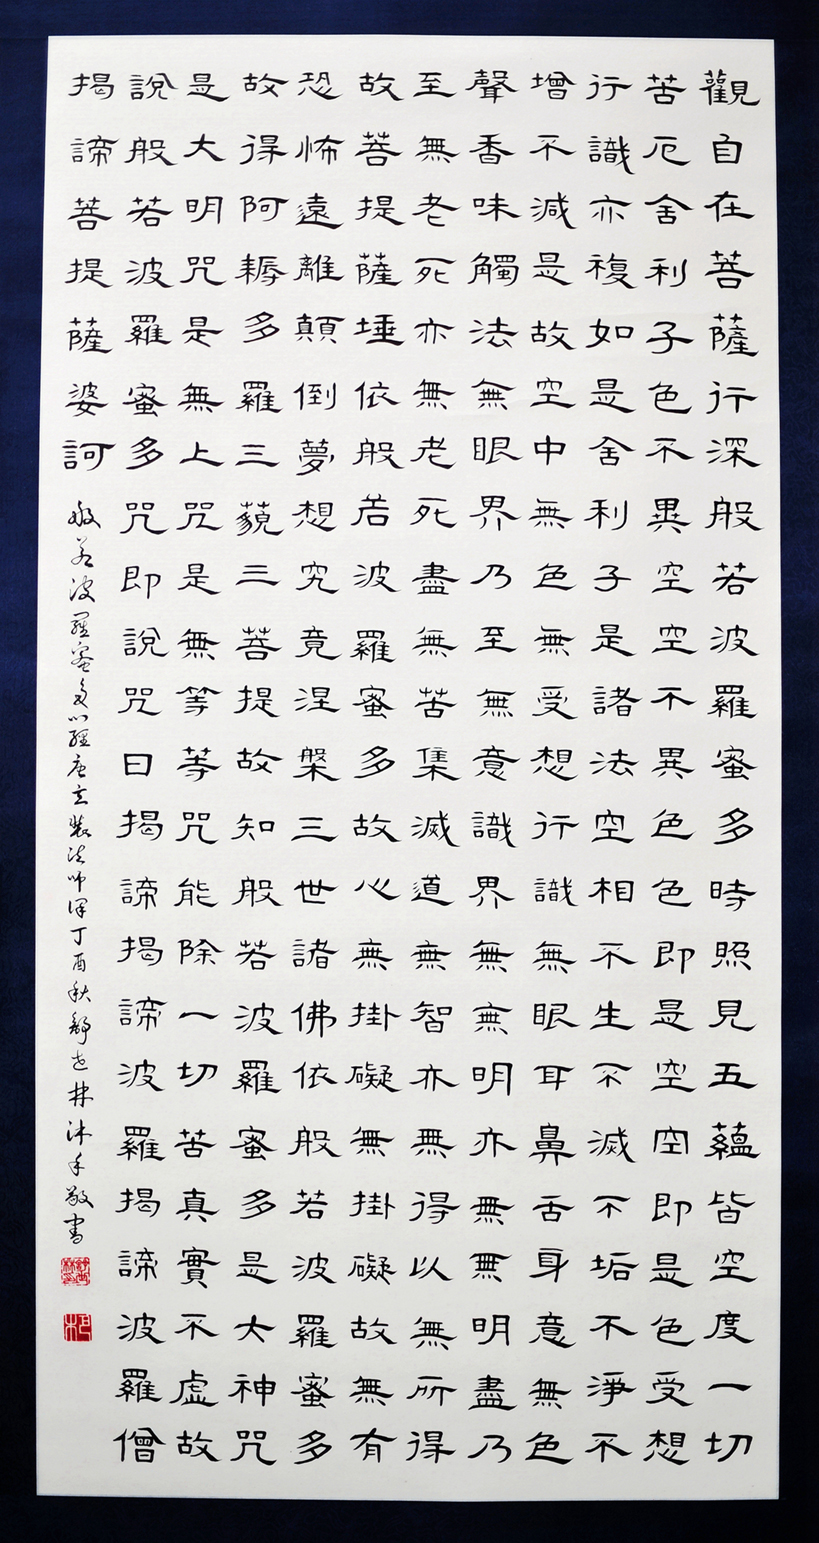 觀自在菩薩行深般若波羅蜜多時照見五蘊皆空度一切
苦厄舍利子色不異空空不異色色即是空空即是色受想
行識亦複如是舍利子是諸法空相不生不滅不垢不淨不
增不減是故空中無色無受想行識無眼耳鼻舌身意無色
聲香味觸法無眼界乃至無意識界無無明亦無無明盡乃
至無老死亦無老死盡無苦集滅道無智亦無得以無所得
故菩提薩埵依般若波羅蜜多故心無掛礙無掛礙故無有
恐怖遠離顛倒夢想究竟涅槃三世諸佛依般若波羅蜜多
故得阿耨多羅三藐三菩提故知般若波羅蜜多是大神咒
是大明咒是無上咒是無等等咒能除一切苦真實不虛故
說般若波羅蜜多咒即說咒曰揭諦揭諦波羅揭諦波羅僧
揭諦菩提薩婆訶
般若波羅蜜多心經唐玄奘法師譯丁酉秋林沐手敬書